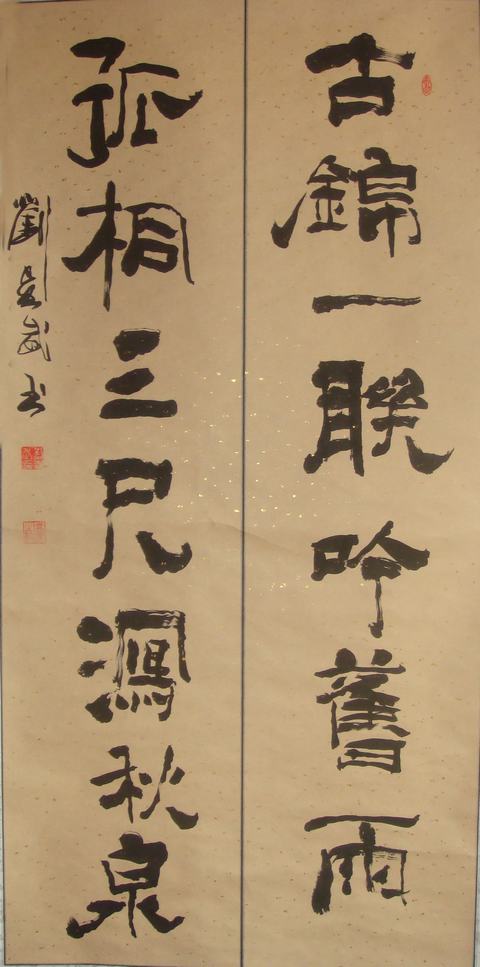 古錦一聯吟舊雨
孤桐三尺瀉秋泉
劉